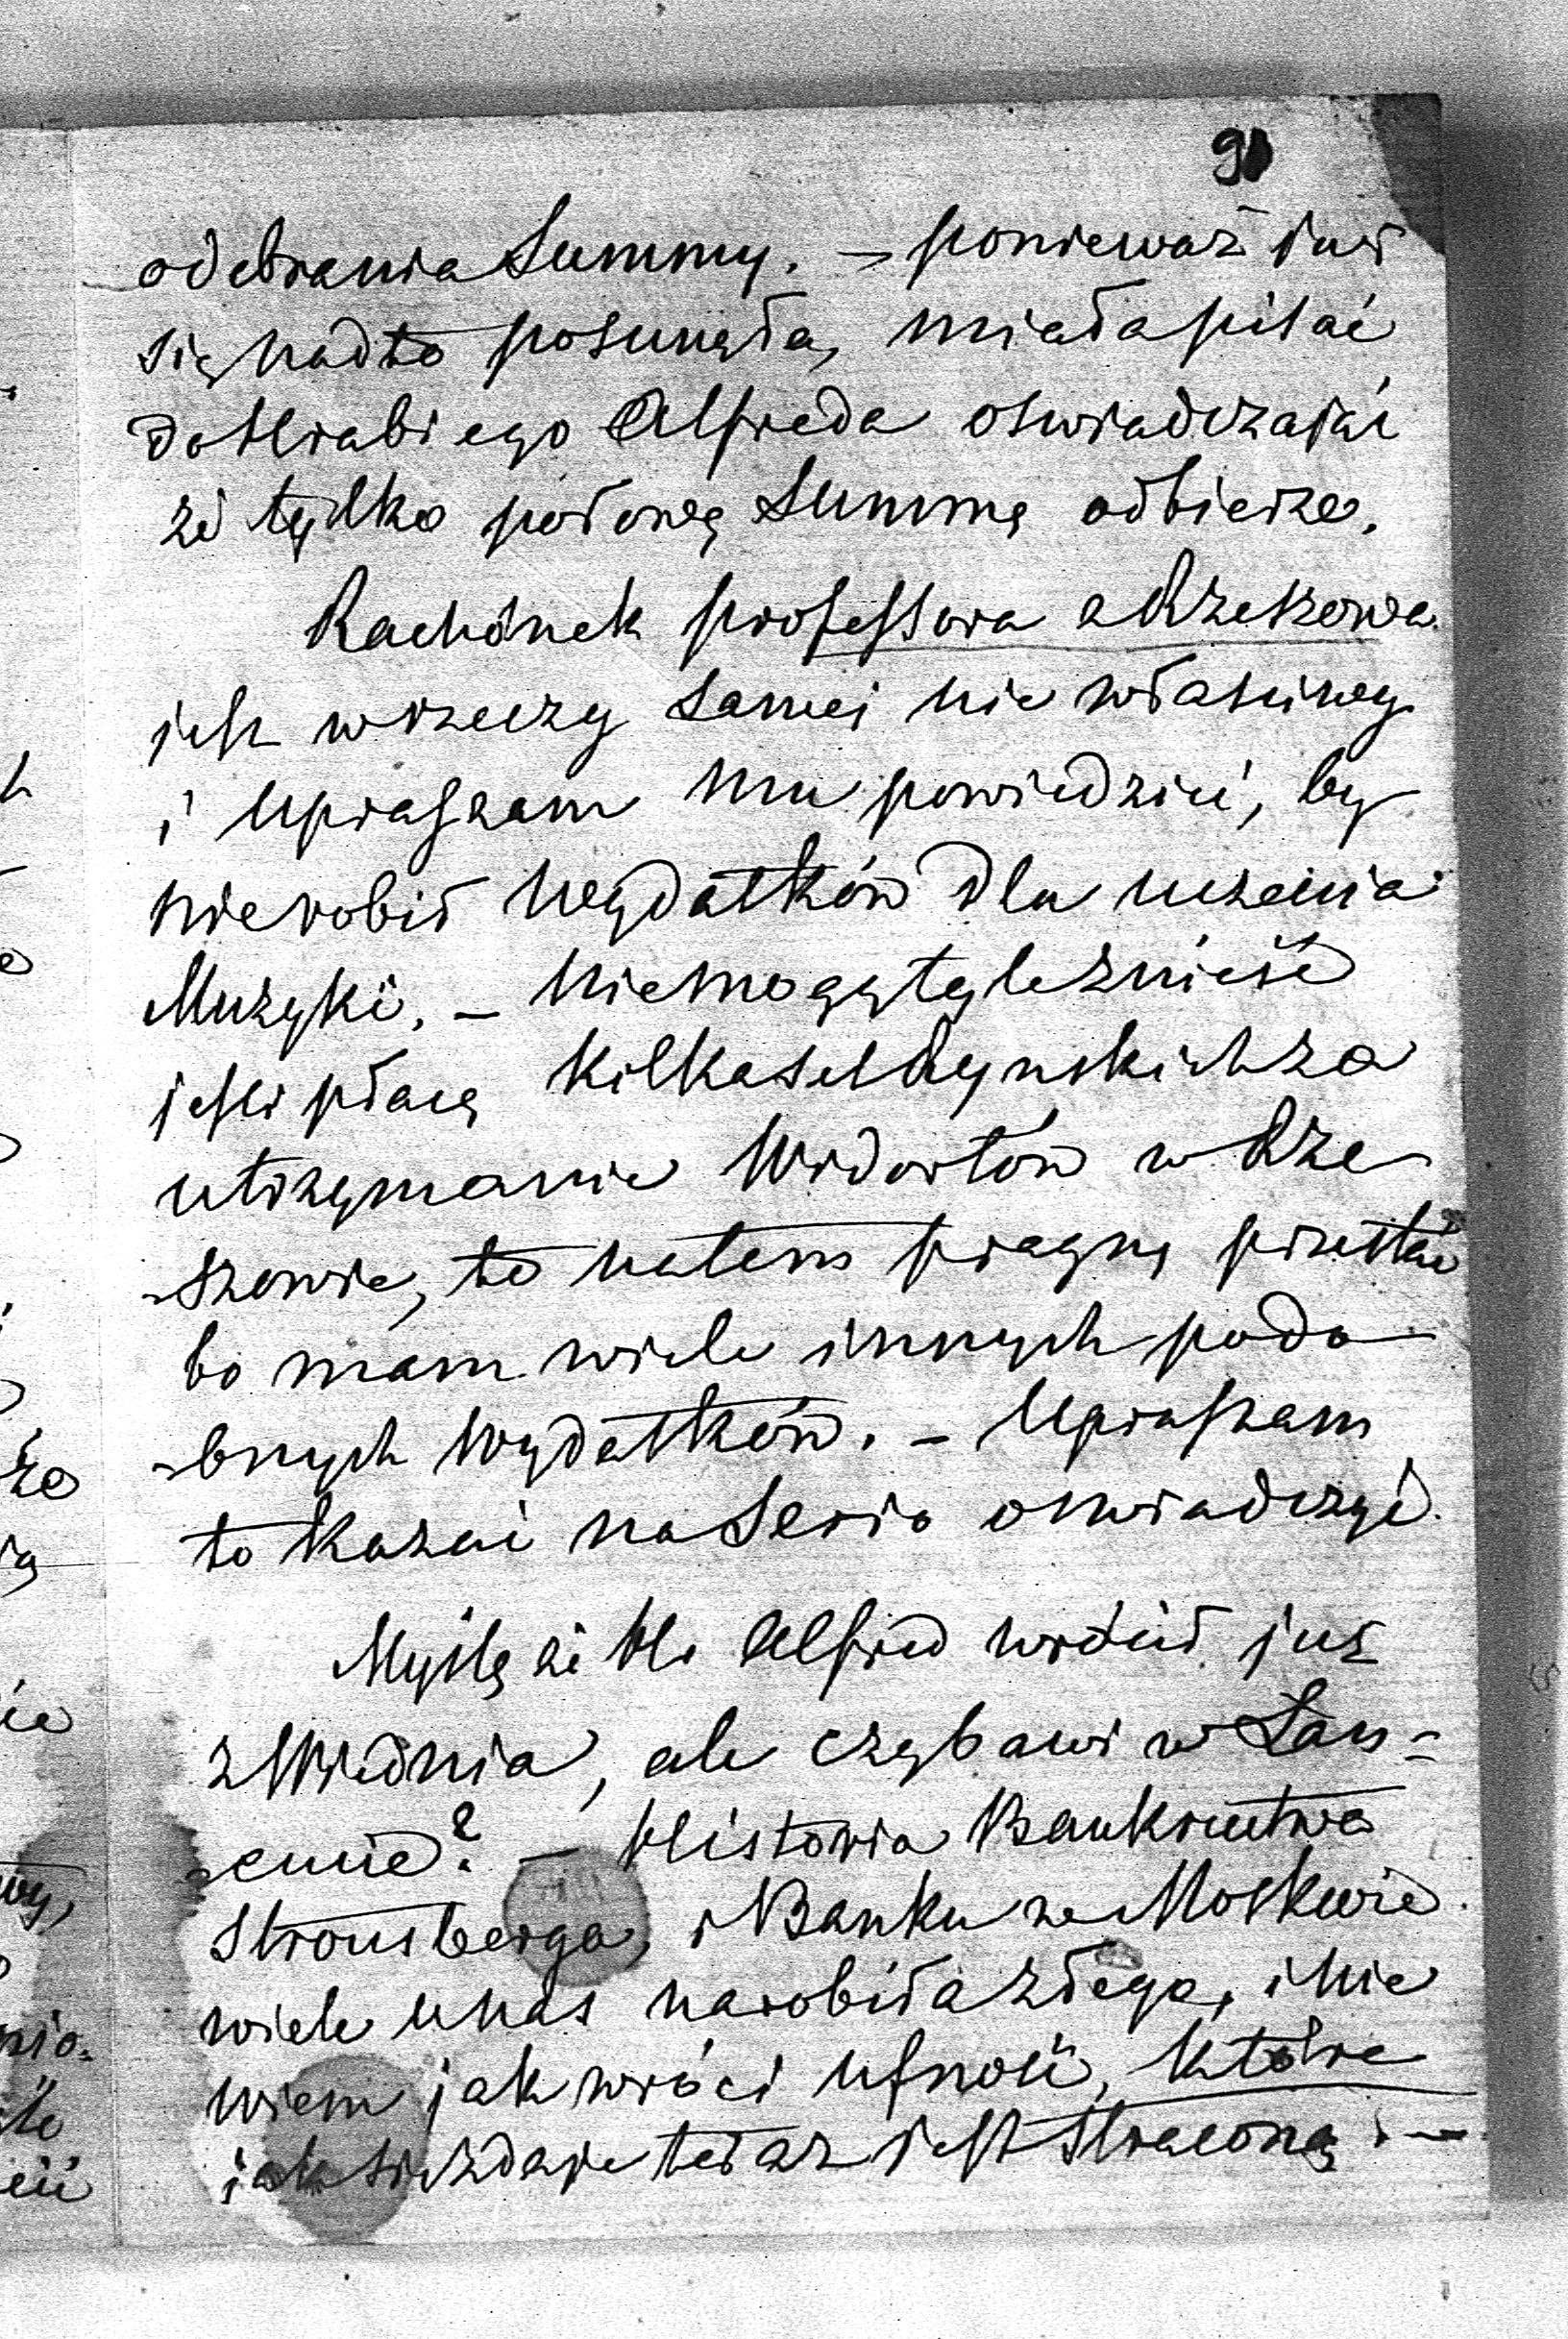 91
odebrania Summy. – ponieważ już
się nadto posunęła, miała pisać
do Hrabiego Alfreda oswiadczając
że tylko połowę Summę odbierze.
Rachónek professora z Rzeszowa
jest w rzeczy samej nie właściwy
i upraszam mu powiedzieć, by
nie robił wydatków dla uczenia
Muzyki. – Niemogę tyle znieść
jeśli płacę kilkaset Rynskich za
utrzymanie w Rze-
-szowie, to na tem pragnę przestać
bo mam wiele innych podo-
-bnych wydatków. – Upraszam
to kazać na Serio oswiadczyć.
Myślę że Hr Alfred wrócił już
z Wiednia, ale czy bawi w Łan=
-cucie? – Historia Bankructwa
Strousberga, i Banku w Moskwie
wiele u nas narobiła złego, i nie
wiem jak wróci ufność, które
jak się zdaje teraz jest straconą. –